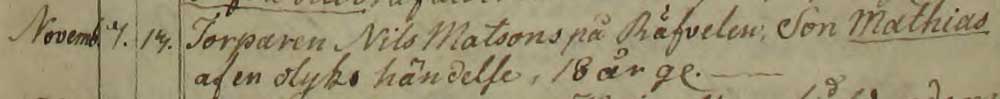 Novemb. 7. 17. Torparen Nils Matsons på Räfvelen, Son Mathias
af en olyks händelse, 18 år ge.